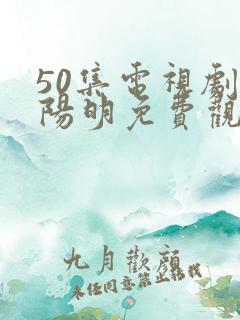 50集電視劇
陽明免費觀
九月歡顏
未经同意禁止转载